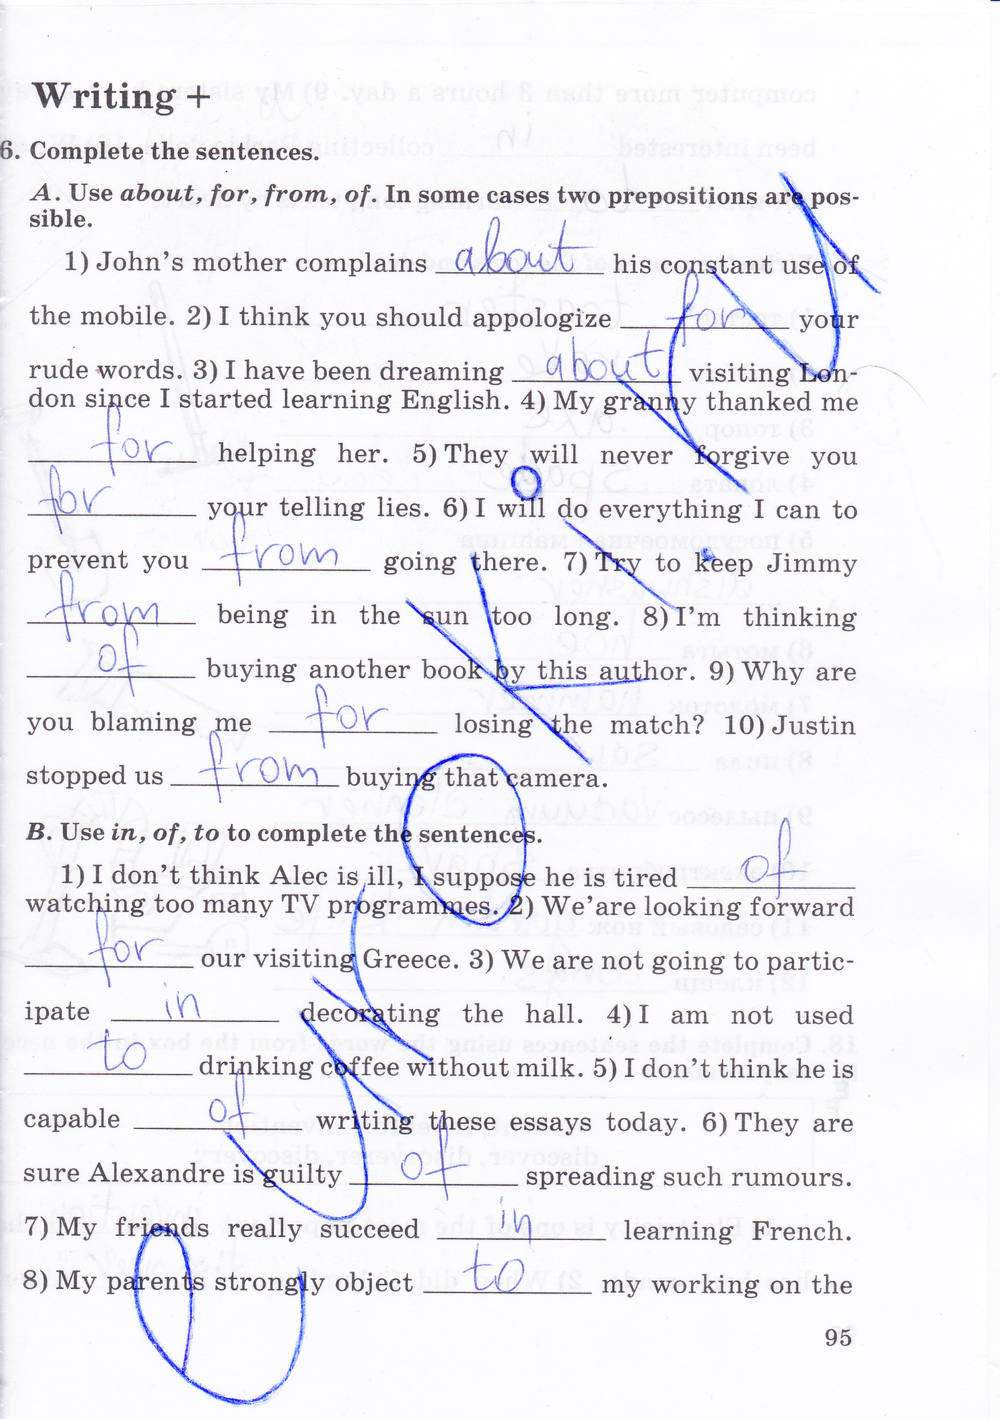 Writing +
6. Complete the sentences.
A. Use about, for, from, of. In some cases two prepositions are pos-
sible.
1) John's mother complains about his constant use of
the mobile. 2) I think you should appologize for your
rude words. 3) I have been dreaming about visiting Lon-
don since I started learning English. 4) My granny thanked me
for helping her. 5) They will never forgive you
for your telling lies. 6) I will do everything I can to
prevent you from going there. 7) Try to keep Jimmy
from being in the sun too long. 8) I'm thinking
of buying another book by this author. 9) Why are
you blaming me for losing the match? 10) Justin
stopped us from buying that camera.
B. Use in, of, to to complete the sentences.
1) I don't think Alec is ill, I suppose he is tired of
watching too many TV programmes. 2) We'are looking forward
for our visiting Greece. 3) We are not going to partic-
ipate in decorating the hall. 4) I am not used
to drinking coffee without milk. 5) I don't think he is
capable of writing these essays today. 6) They are
sure Alexandre is guilty of spreading such rumours.
7) My friends really succeed in learning French.
8) My parents strongly object to my working on the
95